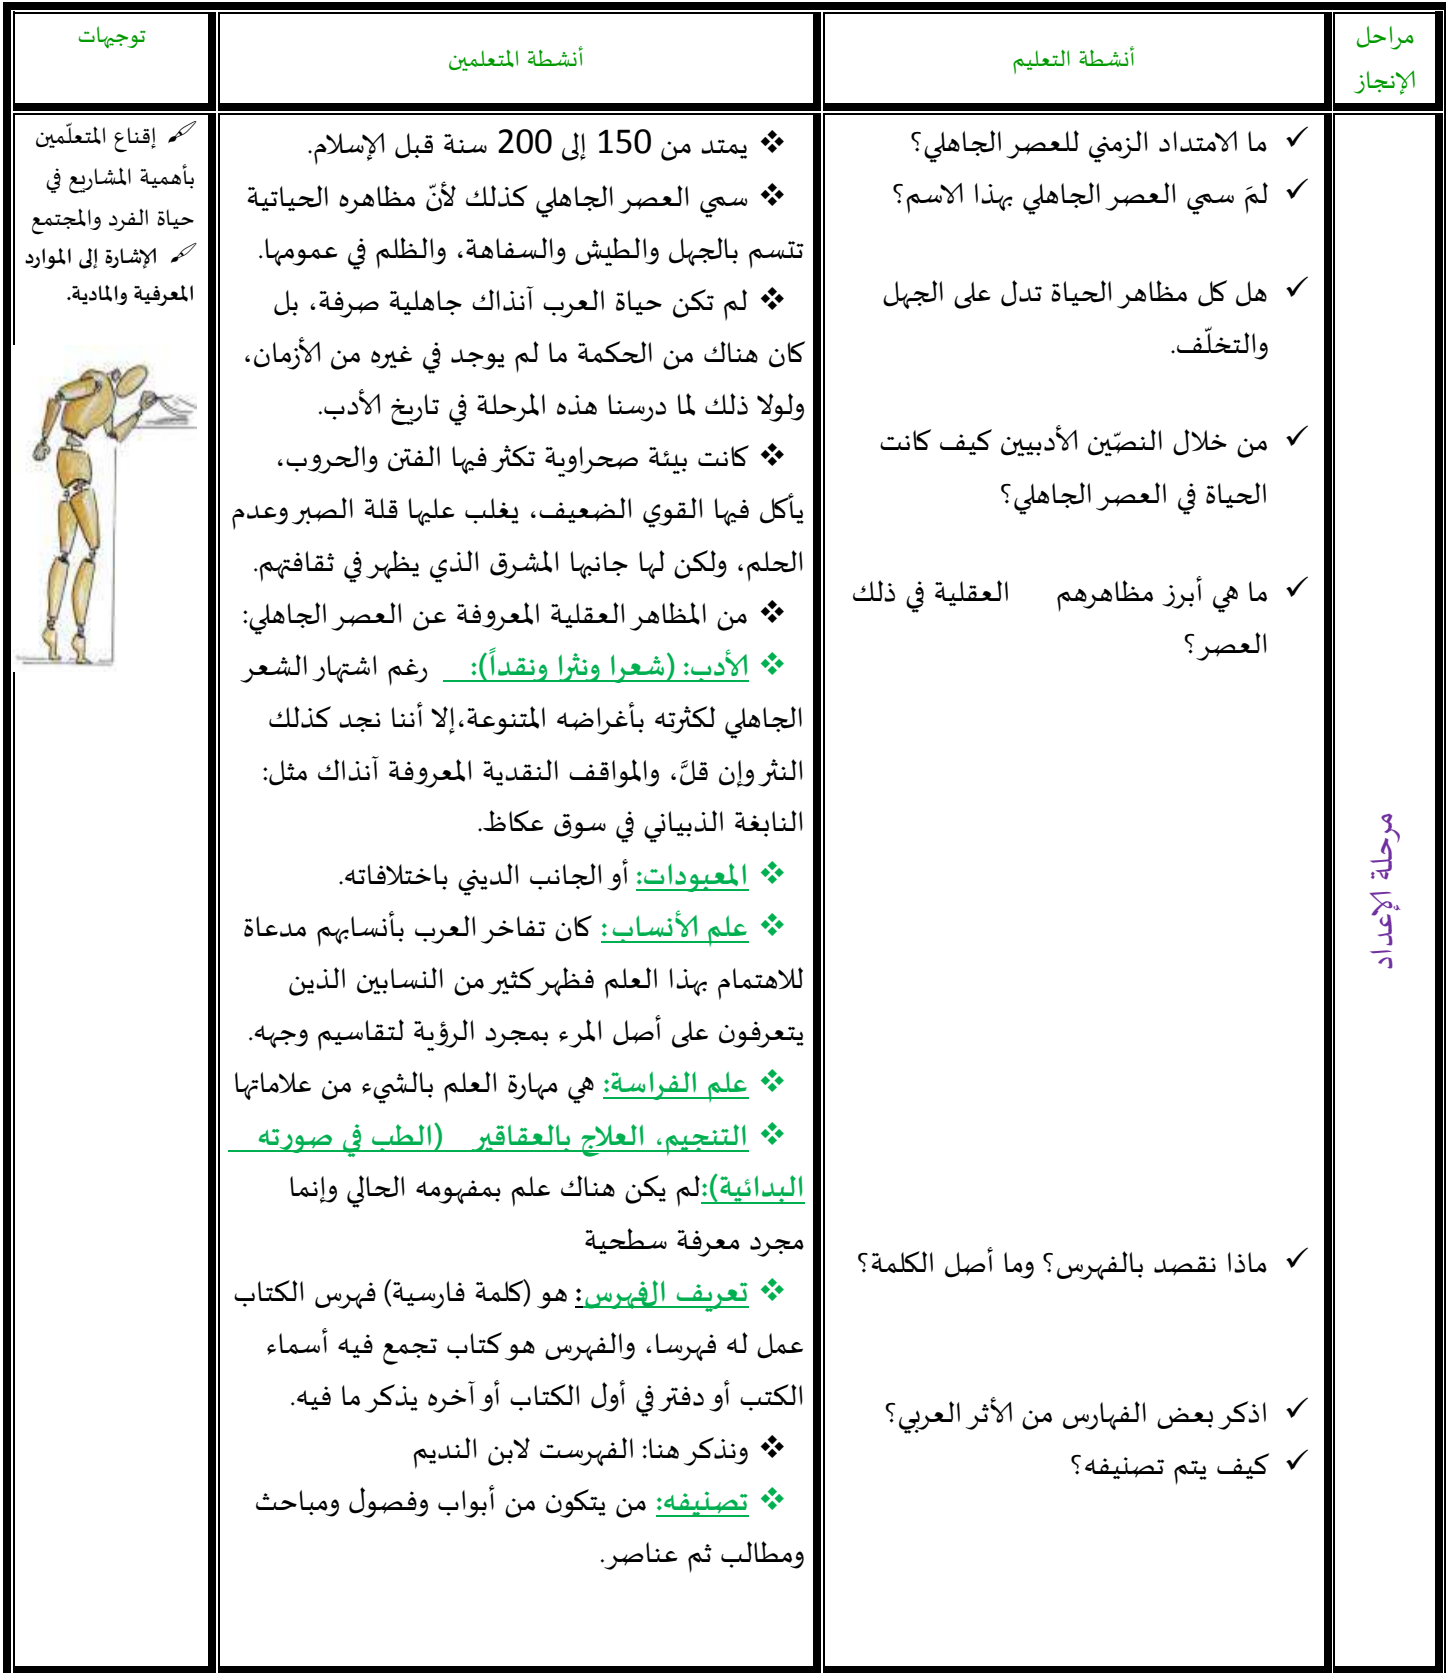 مراحل
الإنجاز
أنشطة التعليم
أنشطة المتعلمين
توجيهات
مرحلة الإعداد
✓ ما الامتداد الزمني للعصر الجاهلي؟
✓ لمَ سمي العصر الجاهلي بهذا الاسم؟
✓ هل كل مظاهر الحياة تدل على الجهل
والتخلّف.
✓ من خلال النصّين الأدبيين كيف كانت
الحياة في العصر الجاهلي؟
✓ ما هي أبرز مظاهرهم العقلية في ذلك
العصر؟
✓ ماذا نقصد بالفهرس؟ وما أصل الكلمة؟
✓ اذكر بعض الفهارس من الأثر العربي؟
✓ كيف يتم تصنيفه؟
❖ يمتد من 150 إلى 200 سنة قبل الإسلام.
❖ سمي العصر الجاهلي كذلك لأنّ مظاهره الحياتية
تتسم بالجهل والطيش والسفاهة، والظلم في عمومها.
❖ لم تكن حياة العرب آنذاك جاهلية صرفة، بل
كان هناك من الحكمة ما لم يوجد في غيره من الأزمان،
ولولا ذلك لما درسنا هذه المرحلة في تاريخ الأدب.
❖ كانت بيئة صحراوية تكثر فيها الفتن والحروب،
يأكل فيها القوي الضعيف، يغلب عليها قلة الصبر وعدم
الحلم، ولكن لها جانبها المشرق الذي يظهر في ثقافتهم.
❖ من المظاهر العقلية المعروفة عن العصر الجاهلي:
❖ الأدب: (شعرا ونثرا ونقداً): رغم اشتهار الشعر
الجاهلي لكثرته بأغراضه المتنوعة،إلا أننا نجد كذلك
النثر وإن قلَّ، والمواقف النقدية المعروفة آنذاك مثل:
النابغة الذبياني في سوق عكاظ.
❖ المعبودات: أو الجانب الديني باختلافاته.
❖ علم الأنساب: كان تفاخر العرب بأنسابهم مدعاة
للاهتمام بهذا العلم فظهر كثير من النسابين الذين
يتعرفون على أصل المرء بمجرد الرؤية لتقاسيم وجهه.
❖ علم الفراسة: هي مهارة العلم بالشيء من علاماتها
❖ التنجيم، العلاج بالعقاقير (الطب في صورته
البدائية):لم يكن هناك علم بمفهومه الحالي وإنما
مجرد معرفة سطحية
❖ تعريف الفهرس: هو (كلمة فارسية) فهرس الكتاب
عمل له فهرسا، والفهرس هو كتاب تجمع فيه أسماء
الكتب أو دفتر في أول الكتاب أو آخره يذكر ما فيه.
❖ ونذكر هنا: الفهرست لابن النديم
❖ تصنيفه: من يتكون من أبواب وفصول ومباحث
ومطالب ثم عناصر.
إقناع المتعلّمين
بأهمية المشاريع في
حياة الفرد والمجتمع
الإشارة إلى الموارد
المعرفية والمادية.